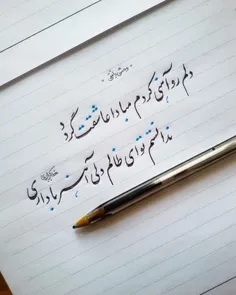 دلم را آهنی کردم مبادا عاشقت گردد
ندانستم تو ای ظالم دلی آهنربا داری